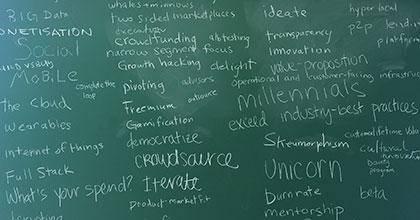 BIG Data
MONETISATION
Social
MOBILE
complete the
loop
the cloud
wearables
internet of things
Full Stack
What's your spend?
whales + minnows
two sided marketplaces
execution
crowdfunding a/b testing
narrow segment focus
Growth hacking delight
pivoting advisors
Freemium outsource
Gamification
democratize
crowdsource
Iterate
product market fit
ideate
transparency
Innovation
value-proposition
operational and customer-facing infrastru
millennials
exceed industry-best practices
Skeuomorphism
Unicorn
burnrate
mentorship
hyper local
p2p lend
platfor
customer lifetime Value
cultural
innovat
bounty
program
beta